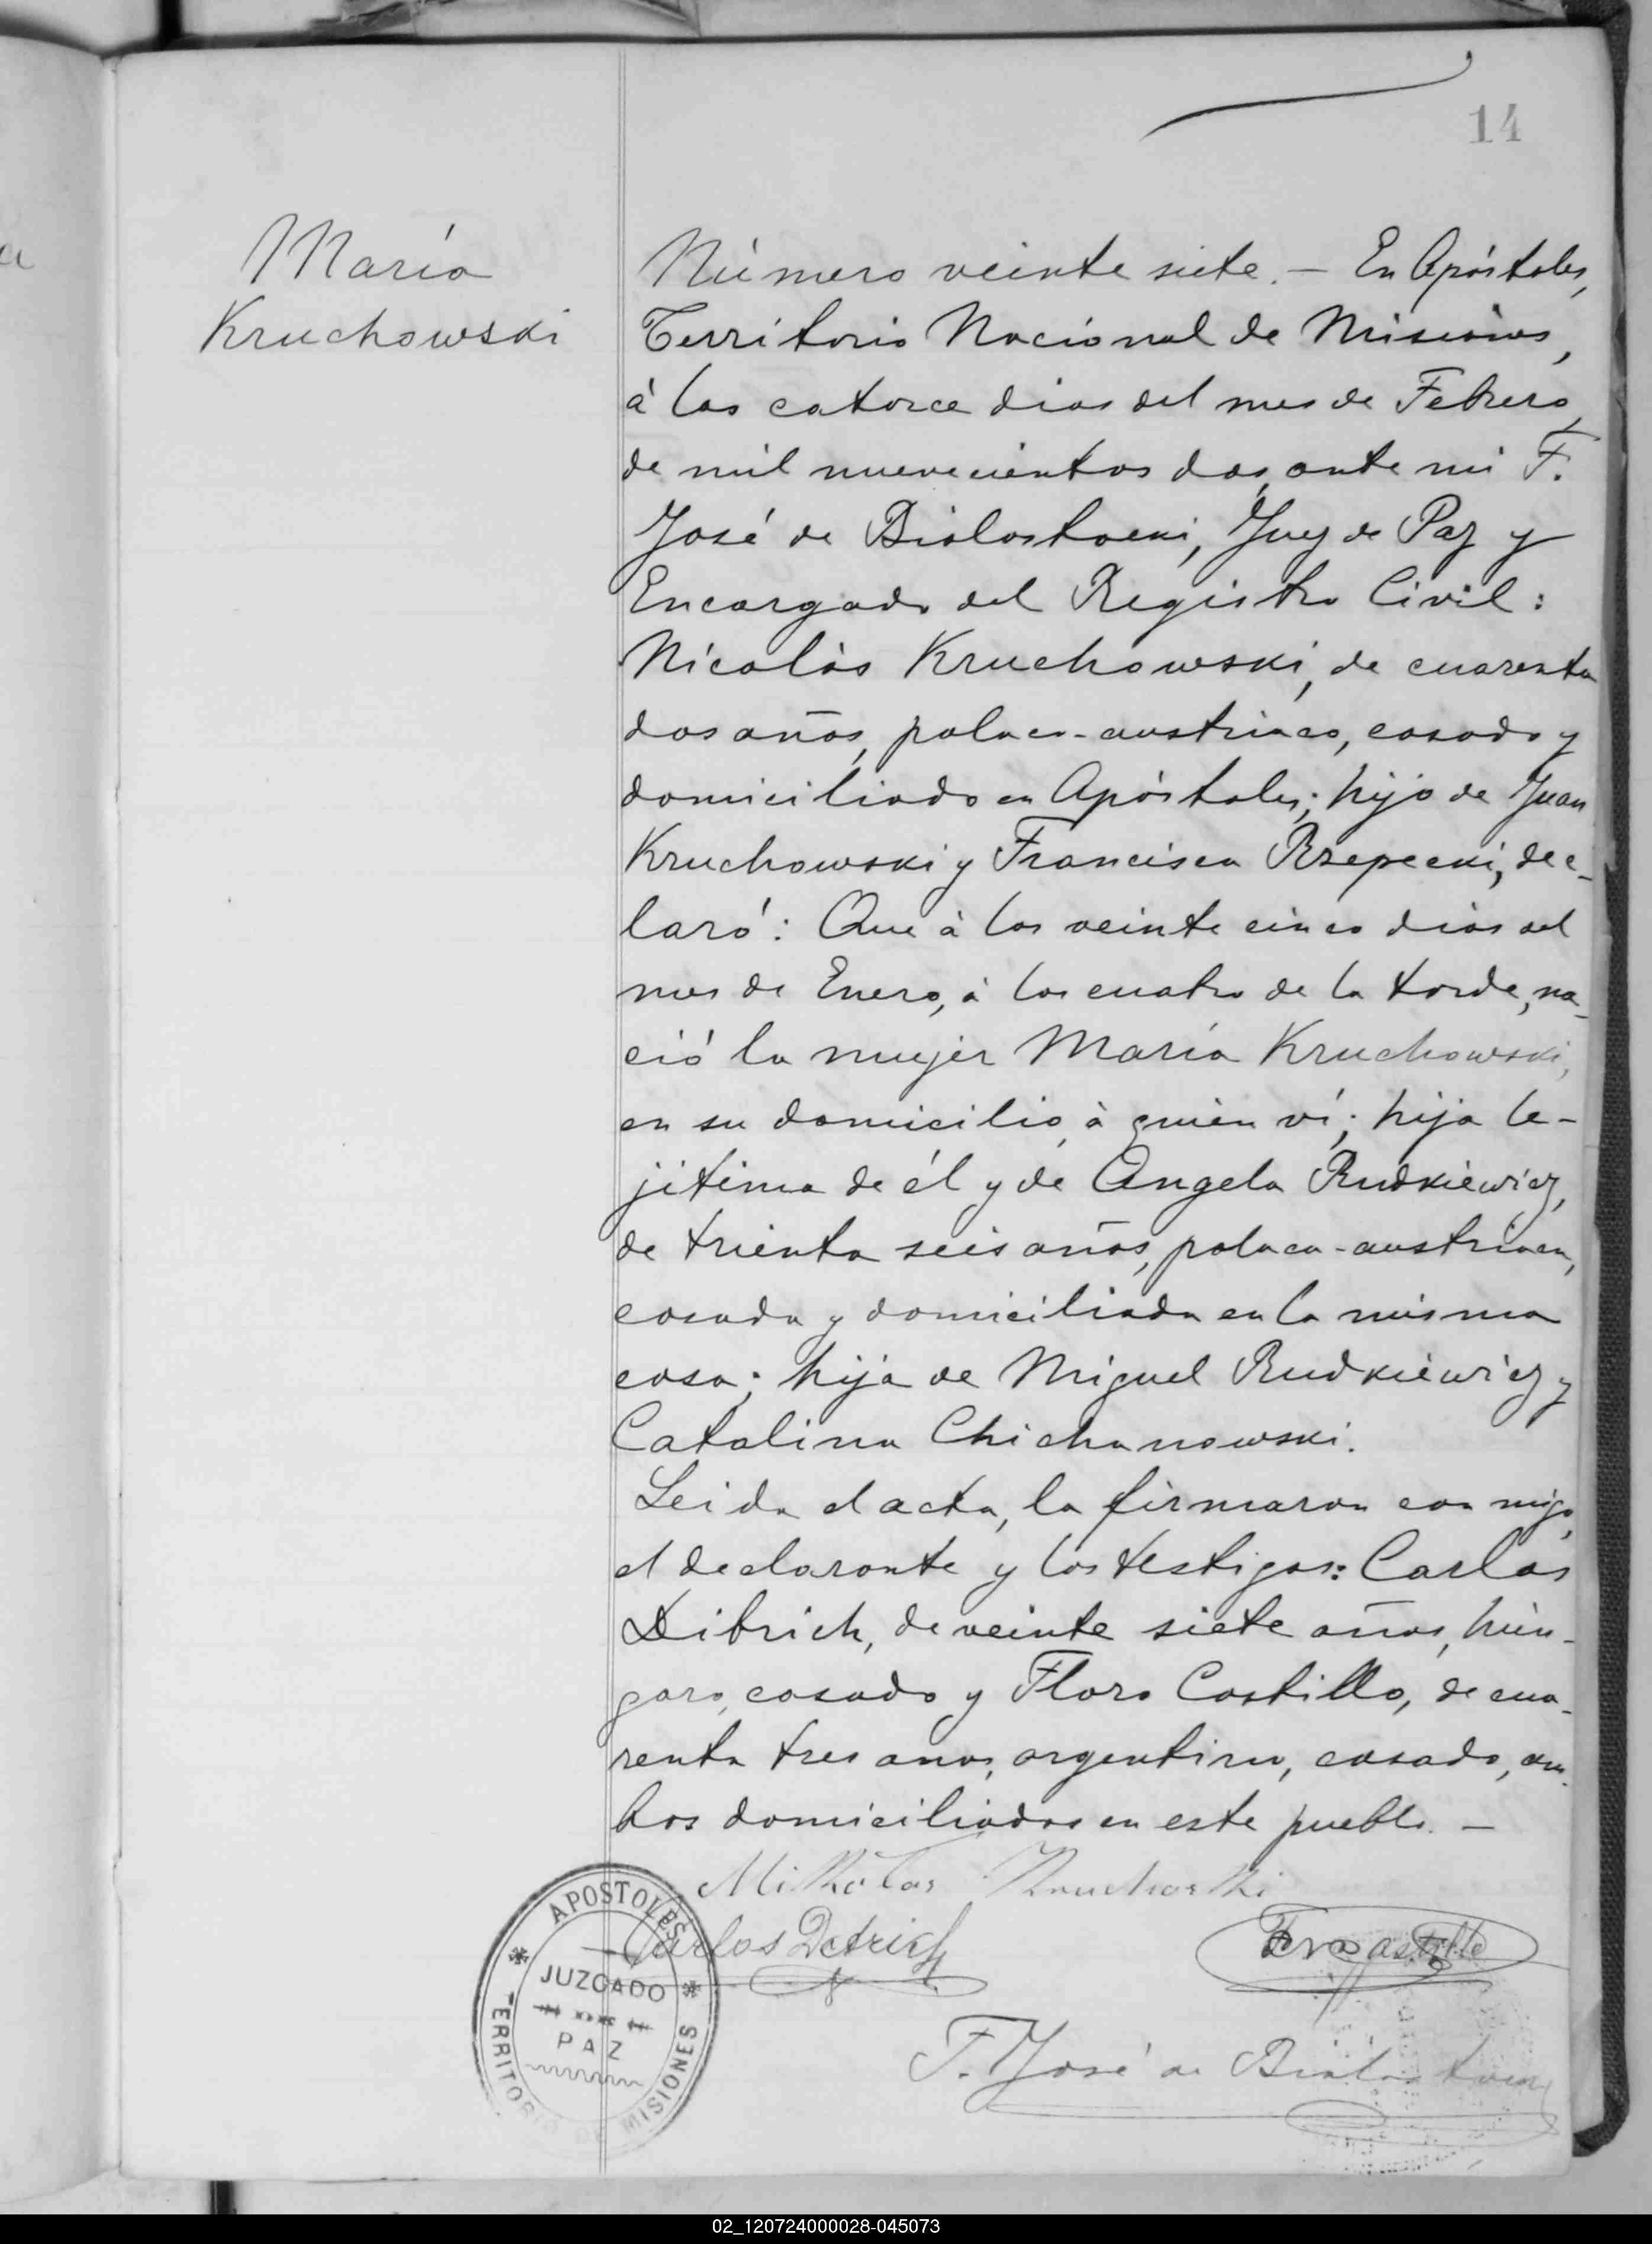 14
María
Kruchowski
Número veinte siete. — En Apóstoles,
Territorio Nacional de Misiones,
á los catorce dias del mes de Febrero,
de mil nuevecientos dos, ante mi F.
José de Bialostocki, Juez de Paz y
Encargado del Registro Civil:
Nicolás Kruchowski, de cuarenta
dos años, polaco-austriaco, casado y
domiciliado en Apóstoles; hijo de Juan
Kruchowski y Francisca Rzepecki, dec-
laró: Que á los veinte cinco dias del
mes de Enero, á las cuatro de la tarde, na-
ció la mujer María Kruchowski,
en su domicilio, á quién ví; hija le-
jitima de él y de Angela Rudkiewicz,
de trienta seis años, polaca-austriaca,
casada y domiciliada en la misma
casa; hija de Miguel Rudkiewicz y
Catalina Chichanowski.
Leida el acta, la firmaron con migo,
el declarante y los testigos: Carlos
Ditrich, de veinte siete años, hún-
garo, casado y Floro Castillo, de cua-
renta tres anos, argentino, casado, am-
bos domiciliados en este pueblo. —
Mikolas Kruchoski
Carlos Detrich
Castillo
F. José de Bialostocki
APOSTOLES
JUZGADO
DE
PAZ
TERRITORIO DE MISIONES
02_120724000028-045073